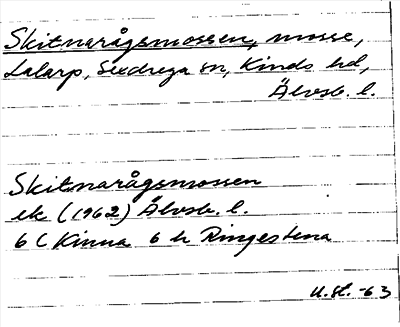 Skitnarågsmossen, mosse,
Lalarp, Sexdrega sn, Kinds hd,
Älvsb. l.
Skitnarågsmossen
ek (1962) Älvsb. l.
6 C Kinna 6 h Ringestena
U. st. -63